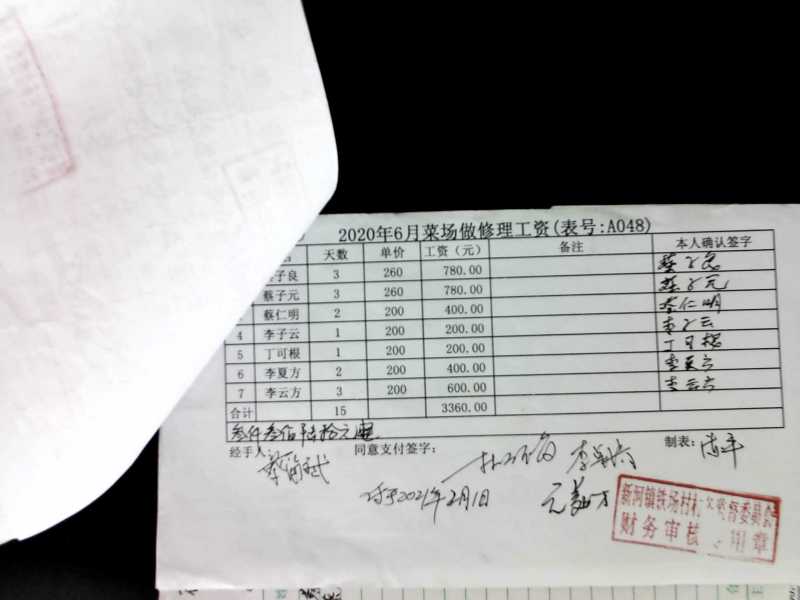 2020年6月菜场做修理工资(表号:A048)
天数 单价 工资（元） 备注 本人确认签字
子良 3 260 780.00 蔡子良
蔡子元 3 260 780.00 蔡子元
蔡仁明 2 200 400.00 蔡仁明
4 李子云 1 200 200.00 李子云
5 丁可根 1 200 200.00 丁可根
6 李夏方 2 200 400.00 李夏方
7 李云方 3 200 600.00 李云方
合计 15 3360.00
叁仟叁佰陆拾元
经手人: 同意支付签字: 制表:
付于2021年2月1日
新河镇铁场村村务监督委员会
财务审核专用章